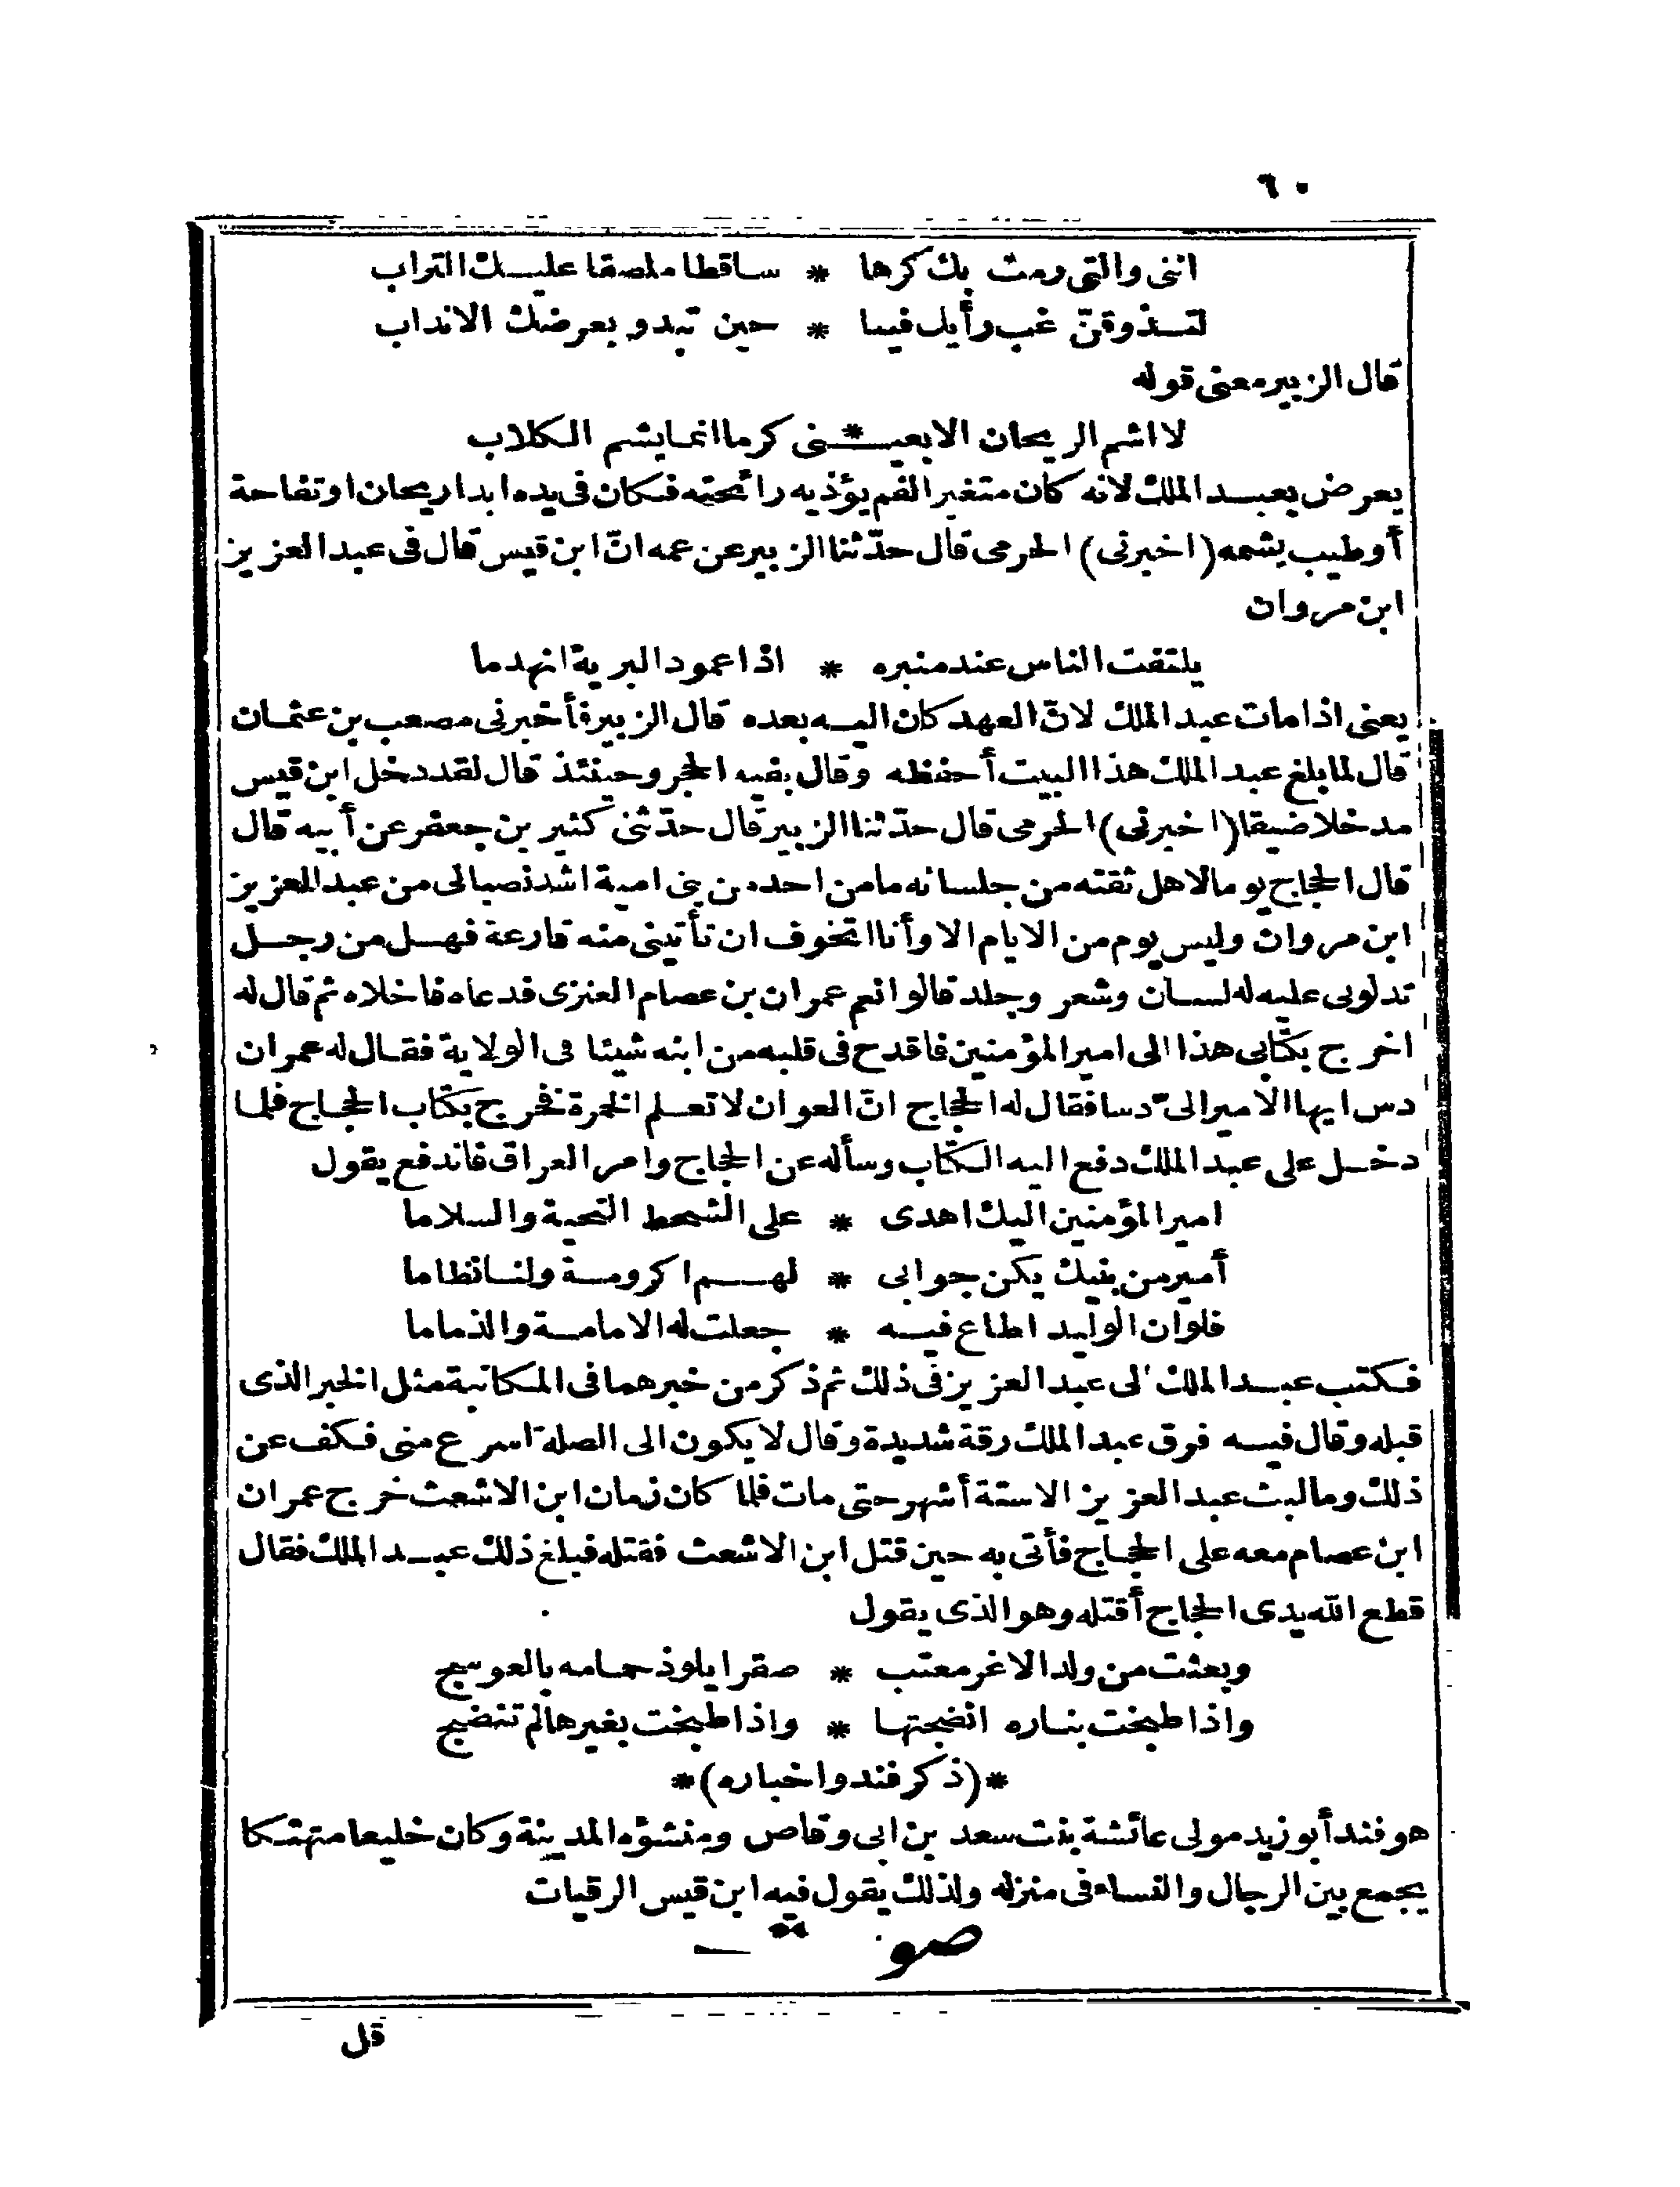 ٦٠
اننى والتى رمت بك كرها * ساقطا ملصقا عليك التراب
لتذوقنّ غب رأيك فينا * حين تبدو بعرضك الانداب
قال الزبير معنى قوله
لا اشم الريحان الا بعيـ * ـنى كرما انما يشم الكلاب
يعرض بعبد الملك لانه كان متغير الفم يؤذيه رائحته فكان فى يده ابدا ريحان اوتفاحة
أوطيب يشمه (اخبرنى) الحرمى قال حدّثنا الزبير عن عمه انّ ابن قيس قال فى عبد العزيز
ابن مروان
يلتفت الناس عند منبره * اذا عمود البرية انهدما
يعنى اذا مات عبد الملك لانّ العهد كان اليه بعده قال الزبير فأخبرنى مصعب بن عثمان
قال لما بلغ عبد الملك هذا البيت أحفظه وقال بفيه الحجر وحينئذ قال لقد دخل ابن قيس
مدخلا ضيقا (اخبرنى) الحرمى قال حدّثنا الزبير قال حدّثنى كثير بن جعفر عن أبيه قال
قال الحجاج يوما لاهل ثقته من جلسائه ما من احد من بنى امية اشد نصبا لى من عبد العزيز
ابن مروان وليس يوم من الايام الا وأنا اتخوف ان تأتينى منه قارعة فهل من رجل
تدلونى عليه له لسان وشعر وجلد قالوا نعم عمران بن عصام العنزى فدعاه فاخلاه ثم قال له
اخرج بكتابى هذا الى امير المؤمنين فاقدح فى قلبه من ابنه شيئا فى الولاية فقال له عمران
دس ايها الامير الىّ دسا فقال له الحجاج انّ العوان لا تعلم الخمرة فخرج بكتاب الحجاج فلما
دخل على عبد الملك دفع اليه الكتاب وسأله عن الحجاج وامر العراق فاندفع يقول
امير المؤمنين اليك اهدى * على الشحط التحية والسلاما
أمير من بنيك يكن جوابى * لهم اكرومة ولنا نظاما
فلو ان الوليد اطاع فيه * جعلت له الامامة والذماما
فكتب عبد الملك الى عبد العزيز فى ذلك ثم ذكر من خبرهما فى المكاتبة مثل الخبر الذى
قبله وقال فيه فرق عبد الملك رقة شديدة وقال لا يكون الى الصلة اسرع منى فكف عن
ذلك وما لبث عبد العزيز الا ستة أشهر حتى مات فلما كان زمان ابن الاشعث خرج عمران
ابن عصام معه على الحجاج فأتى به حين قتل ابن الاشعث فقتله فبلغ ذلك عبد الملك فقال
قطع الله يدى الحجاج أقتله وهو الذى يقول
وبعثت من ولد الاغر معتب * صقرا يلوذ حمامه بالعوسج
واذا طبخت بناره انضجتها * واذا طبخت بغيرها لم تنضج
*(ذكر فند واخباره)*
هو فند أبو زيد مولى عائشة بنت سعد بن ابى وقاص ومنشؤه المدينة وكان خليعا متهتكا
يجمع بين الرجال والنساء فى منزله ولذلك يقول فيه ابن قيس الرقيات
صوت
قل